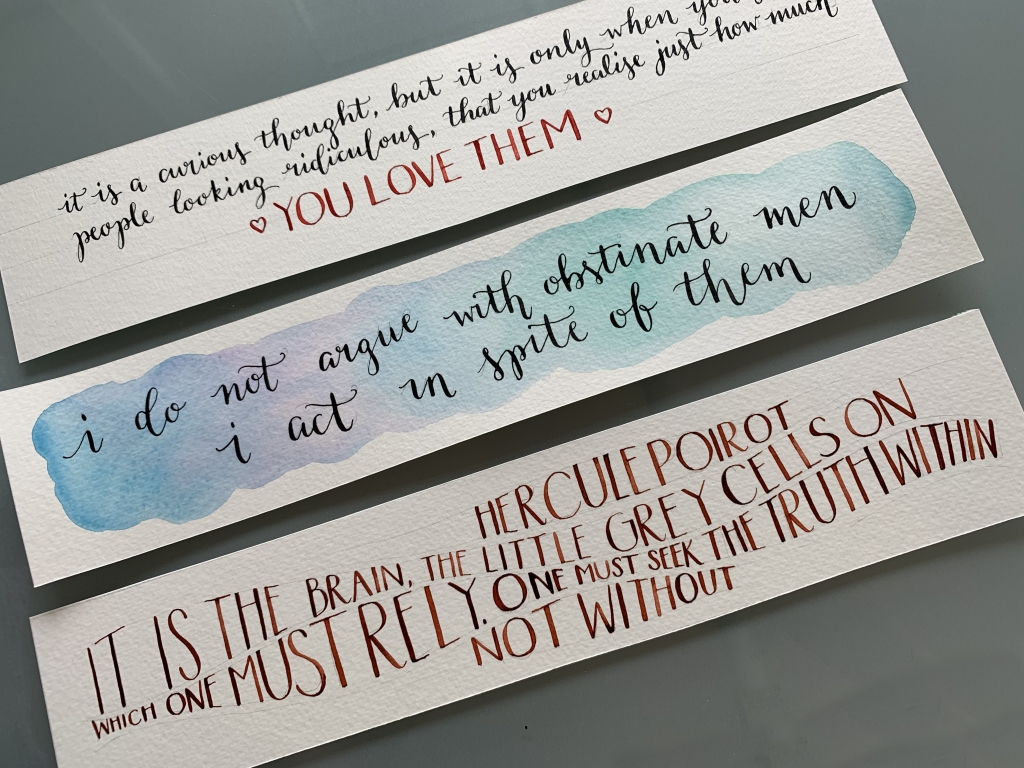 it is a curious thought, but it is only when you
people looking ridiculous, that you realise just how much
♡ YOU LOVE THEM ♡
i do not argue with obstinate men
i act in spite of them
HERCULE POIROT
IT IS THE BRAIN, THE LITTLE GREY CELLS ON
WHICH ONE MUST RELY. ONE MUST SEEK THE TRUTH WITHIN
NOT WITHOUT